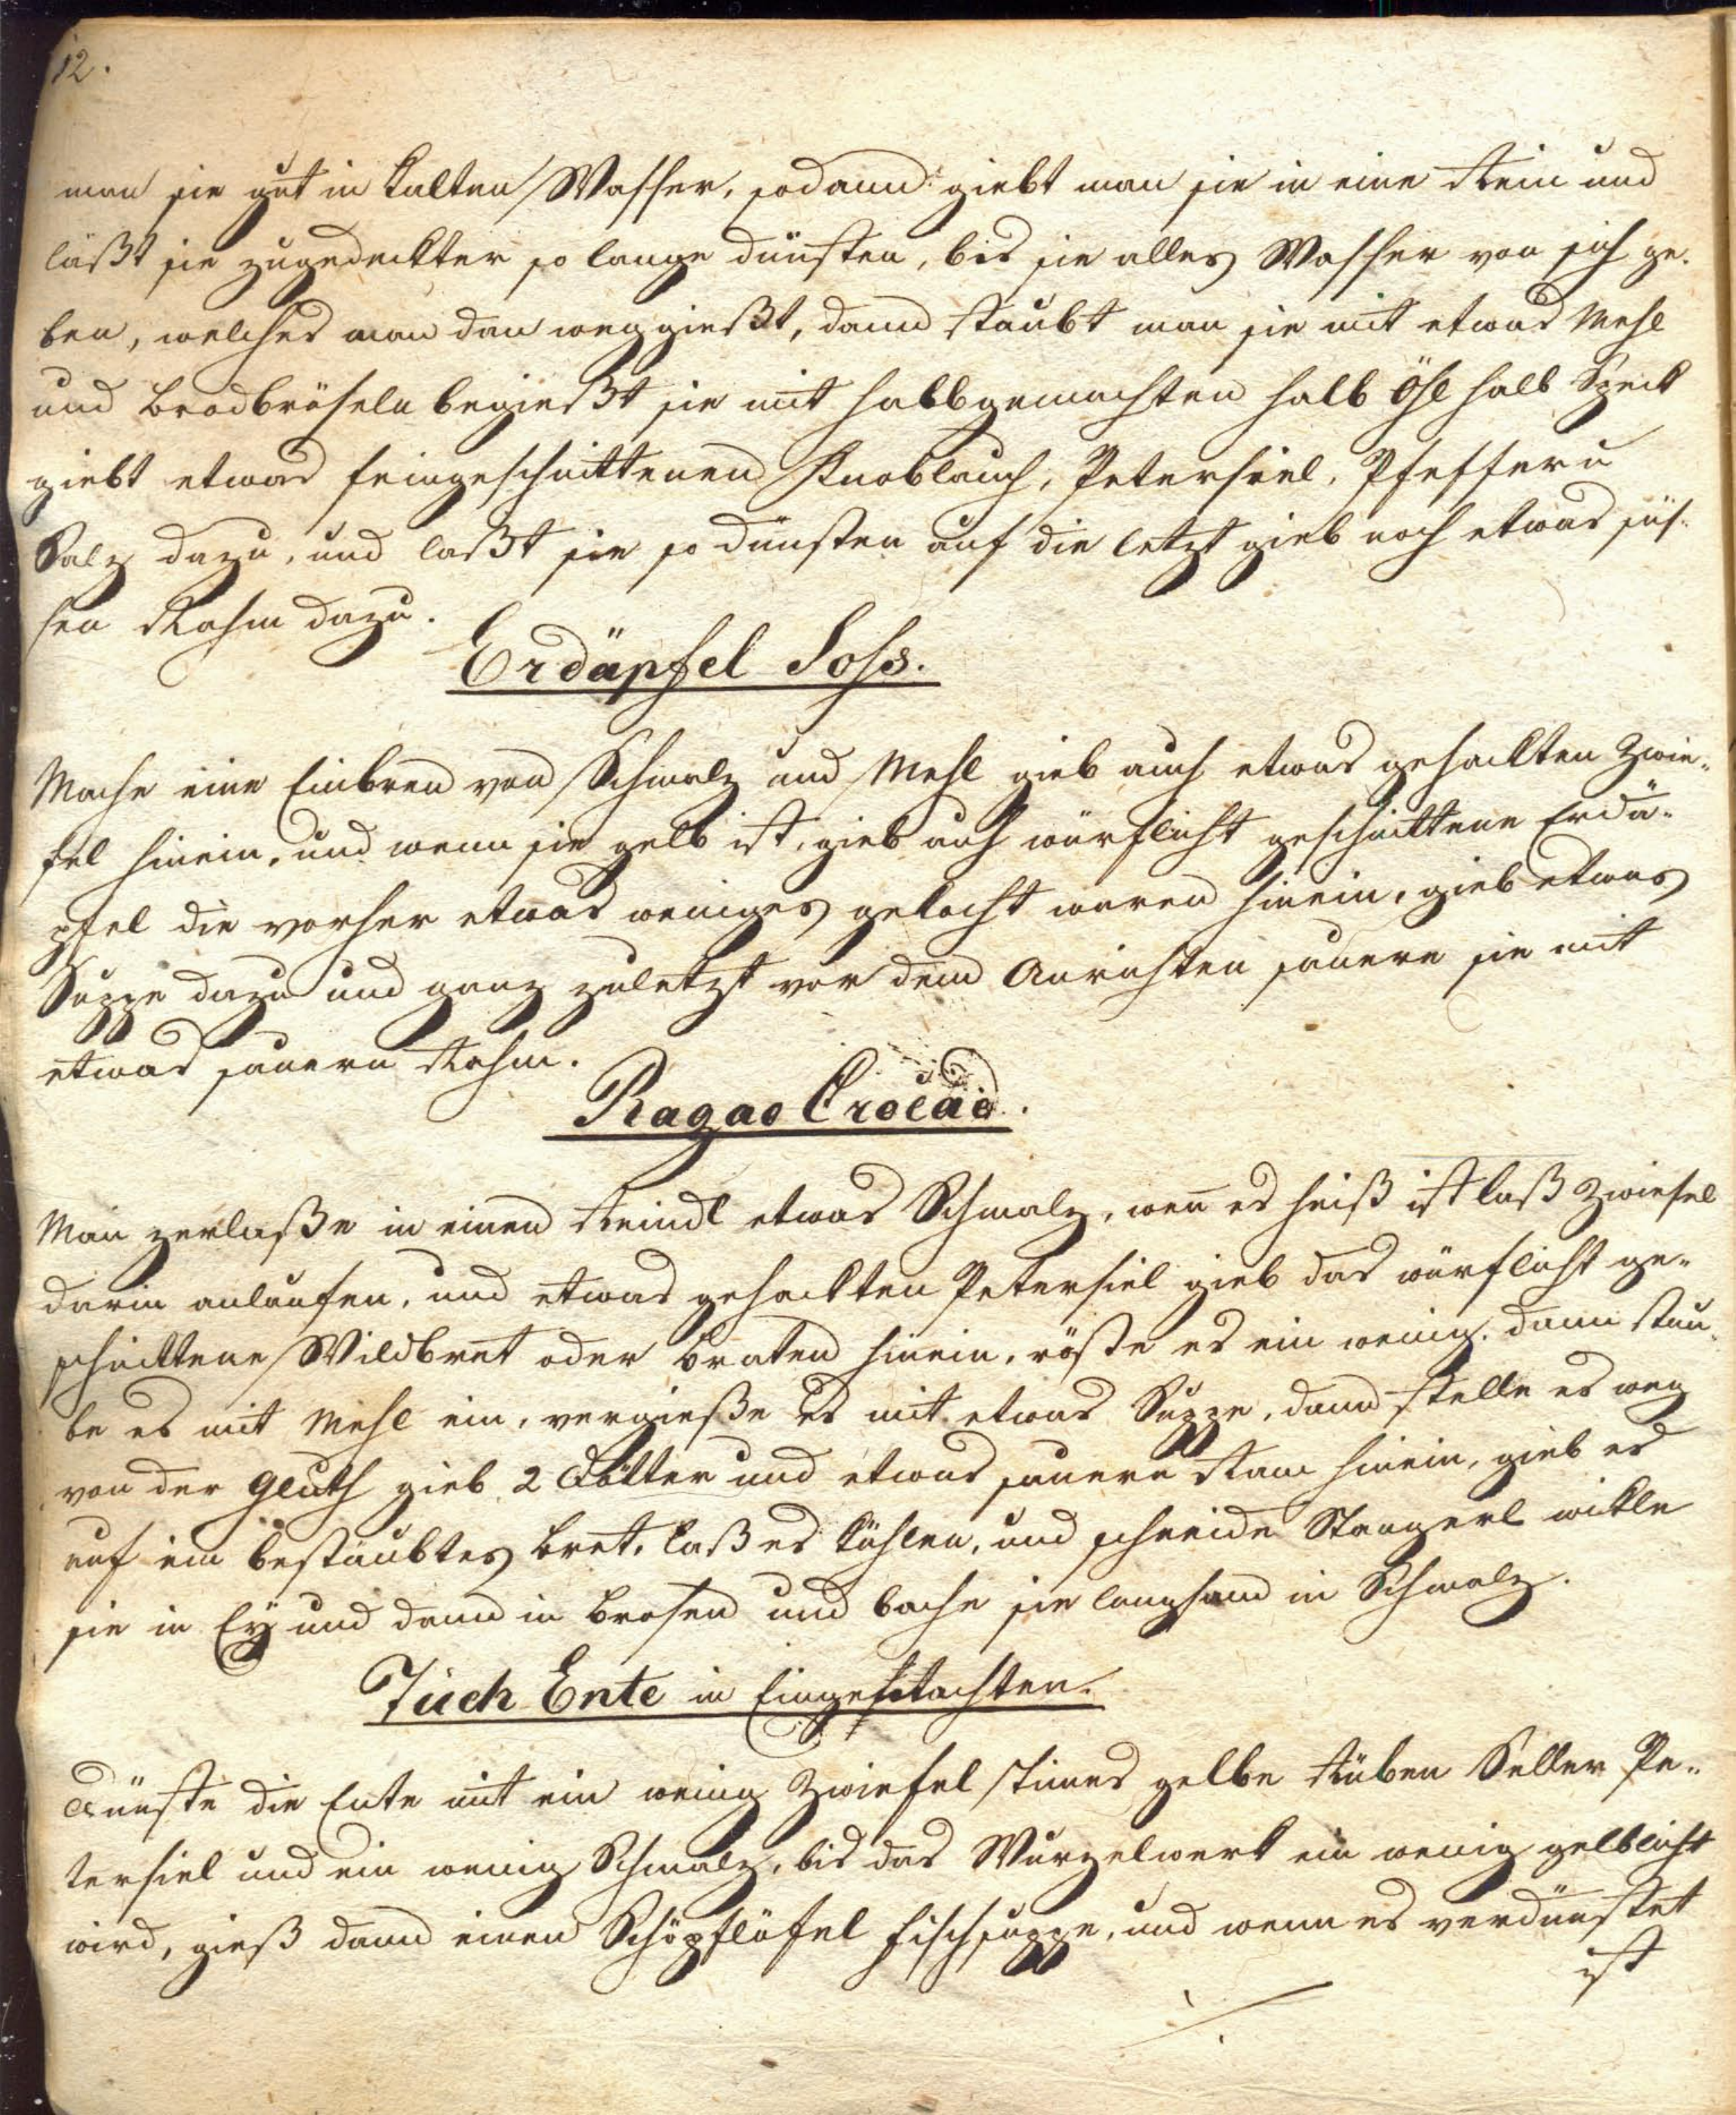 12.
man sie gut in kalten Wasser, sodann giebt man sie in eine Rein und
läßt sie zugedeckter so lange dünsten, bis sie alles Wasser von sich ge-
ben, welches man dan weggießt, dann staubt man sie mit etwas Mehl
und Brodbröseln begießt sie mit halbgemachten halb Öhl halb Speck
giebt etwas feingeschnittenen Knoblauch, Petersiel, Pfeffer u
Salz dazu, und laßt sie so dünsten auf die letzt gieb noch etwas süs-
sen Rahm dazu.
Erdäpfel Soss.
Mache eine Einbren von Schmalz und Mehl gieb auch etwas gehackten Zwie-
fel hinein, und wenn sie gelb ist, gieb auch würflicht geschnittene Erdä-
pfel die vorher etwas weniges gekocht waren hinein, gieb etwas
Suppe dazu und ganz zuletzt vor dem Anrichten sauere sie mit
etwas sauern Rahm.
Ragao Crocäo.
Man zerlaße in einen Reindl etwas Schmalz, wen̄ es heiß ist laß Zwiefel
darin anlaufen, und etwas gehackten Petersiel gieb das würflicht ge-
schnittene Wildbret oder Braten hinein, röste es ein wenig, dann stau-
be es mit Mehl ein, vergieße es mit etwas Suppe, dann stelle es weg
von der Gluth gieb 2 Dötter und etwas sauern Ram hinein, gieb es
auf ein bestäubtes Bret, laß es kühlen, und schneide Stangerl wikle
sie in Ey und dann in Brosen und bache sie langsam in Schmalz.
Tuch Ente in
Dünste die Ente mit ein wenig Zwiefel Times gelbe Rüben Seller Pe-
tersiel und ein wenig Schmalz, bis das Wurzelwerk ein wenig gelblicht
wird, gieß dann einen Schöpflöfel Fischsuppe, und wenn es verdünstet
ist